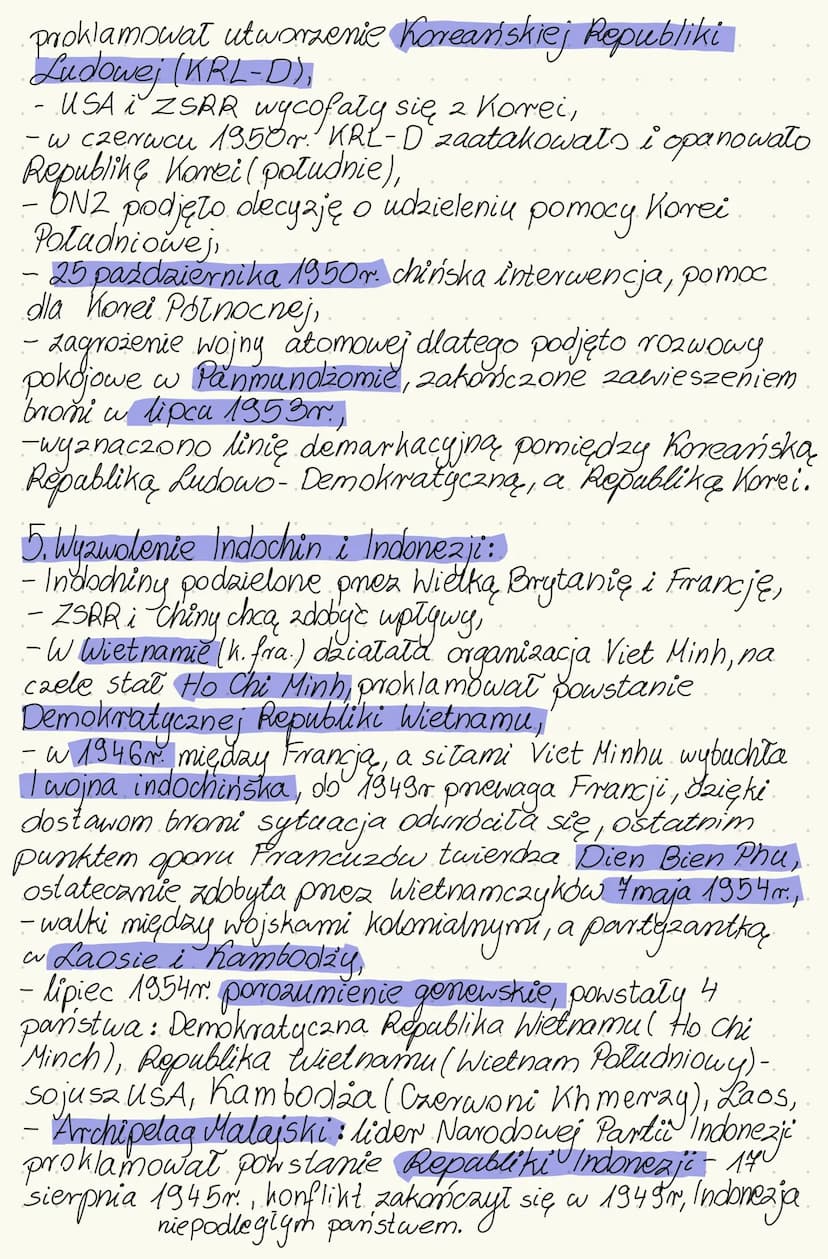 proklamował utworzenie Koreańskiej Republiki
Ludowej (KRL-D),
- USA i ZSRR wycofały się z Korei,
- w czerwcu 1950r. KRL-D zaatakowało i opanowało
Republikę Korei (południe),
- ONZ podjęło decyzję o udzieleniu pomocy Korei
Południowej,
- 25 października 1950r. chińska interwencja, pomoc
dla Korei Północnej,
- zagrożenie wojny atomowej dlatego podjęto rozwowy
pokojowe w Panmundżomie, zakończone zawieszeniem
broni w lipcu 1953r.,
- wyznaczono linię demarkacyjną pomiędzy Koreańską
Republiką Ludowo-Demokratyczną, a Republiką Korei.
5. Wyzwolenie Indochin i Indonezji:
- Indochiny podzielone przez Wielką Brytanię i Francję,
- ZSRR i Chiny chcą zdobyć wpływy,
- W Wietnamie (k. fra.) działała organizacja Viet Minh, na
czele stał Ho Chi Minh, proklamował powstanie
Demokratycznej Republiki Wietnamu,
- w 1946r. między Francją, a siłami Viet Minhu wybuchła
I wojna indochińska, do 1949r przewaga Francji, dzięki
dostawom broni sytuacja odwróciła się, ostatnim
punktem oporu Francuzów twierdza Dien Bien Phu,
ostatecznie zdobyta przez Wietnamczyków 7 maja 1954r.,
- walki między wojskami kolonialnymi, a partyzantką
w Laosie i Kambodży,
- lipiec 1954r. porozumienie genewskie, powstały 4
państwa: Demokratyczna Republika Wietnamu (Ho Chi
Minch), Republika Wietnamu (Wietnam Południowy)-
sojusz USA, Kambodża (Czerwoni Khmerzy), Laos,
- Archipelag Malajski: lider Narodowej Partii Indonezji
proklamował powstanie Republiki Indonezji - 17
sierpnia 1945r., konflikt zakończył się w 1949r, Indonezja
niepodległym państwem.